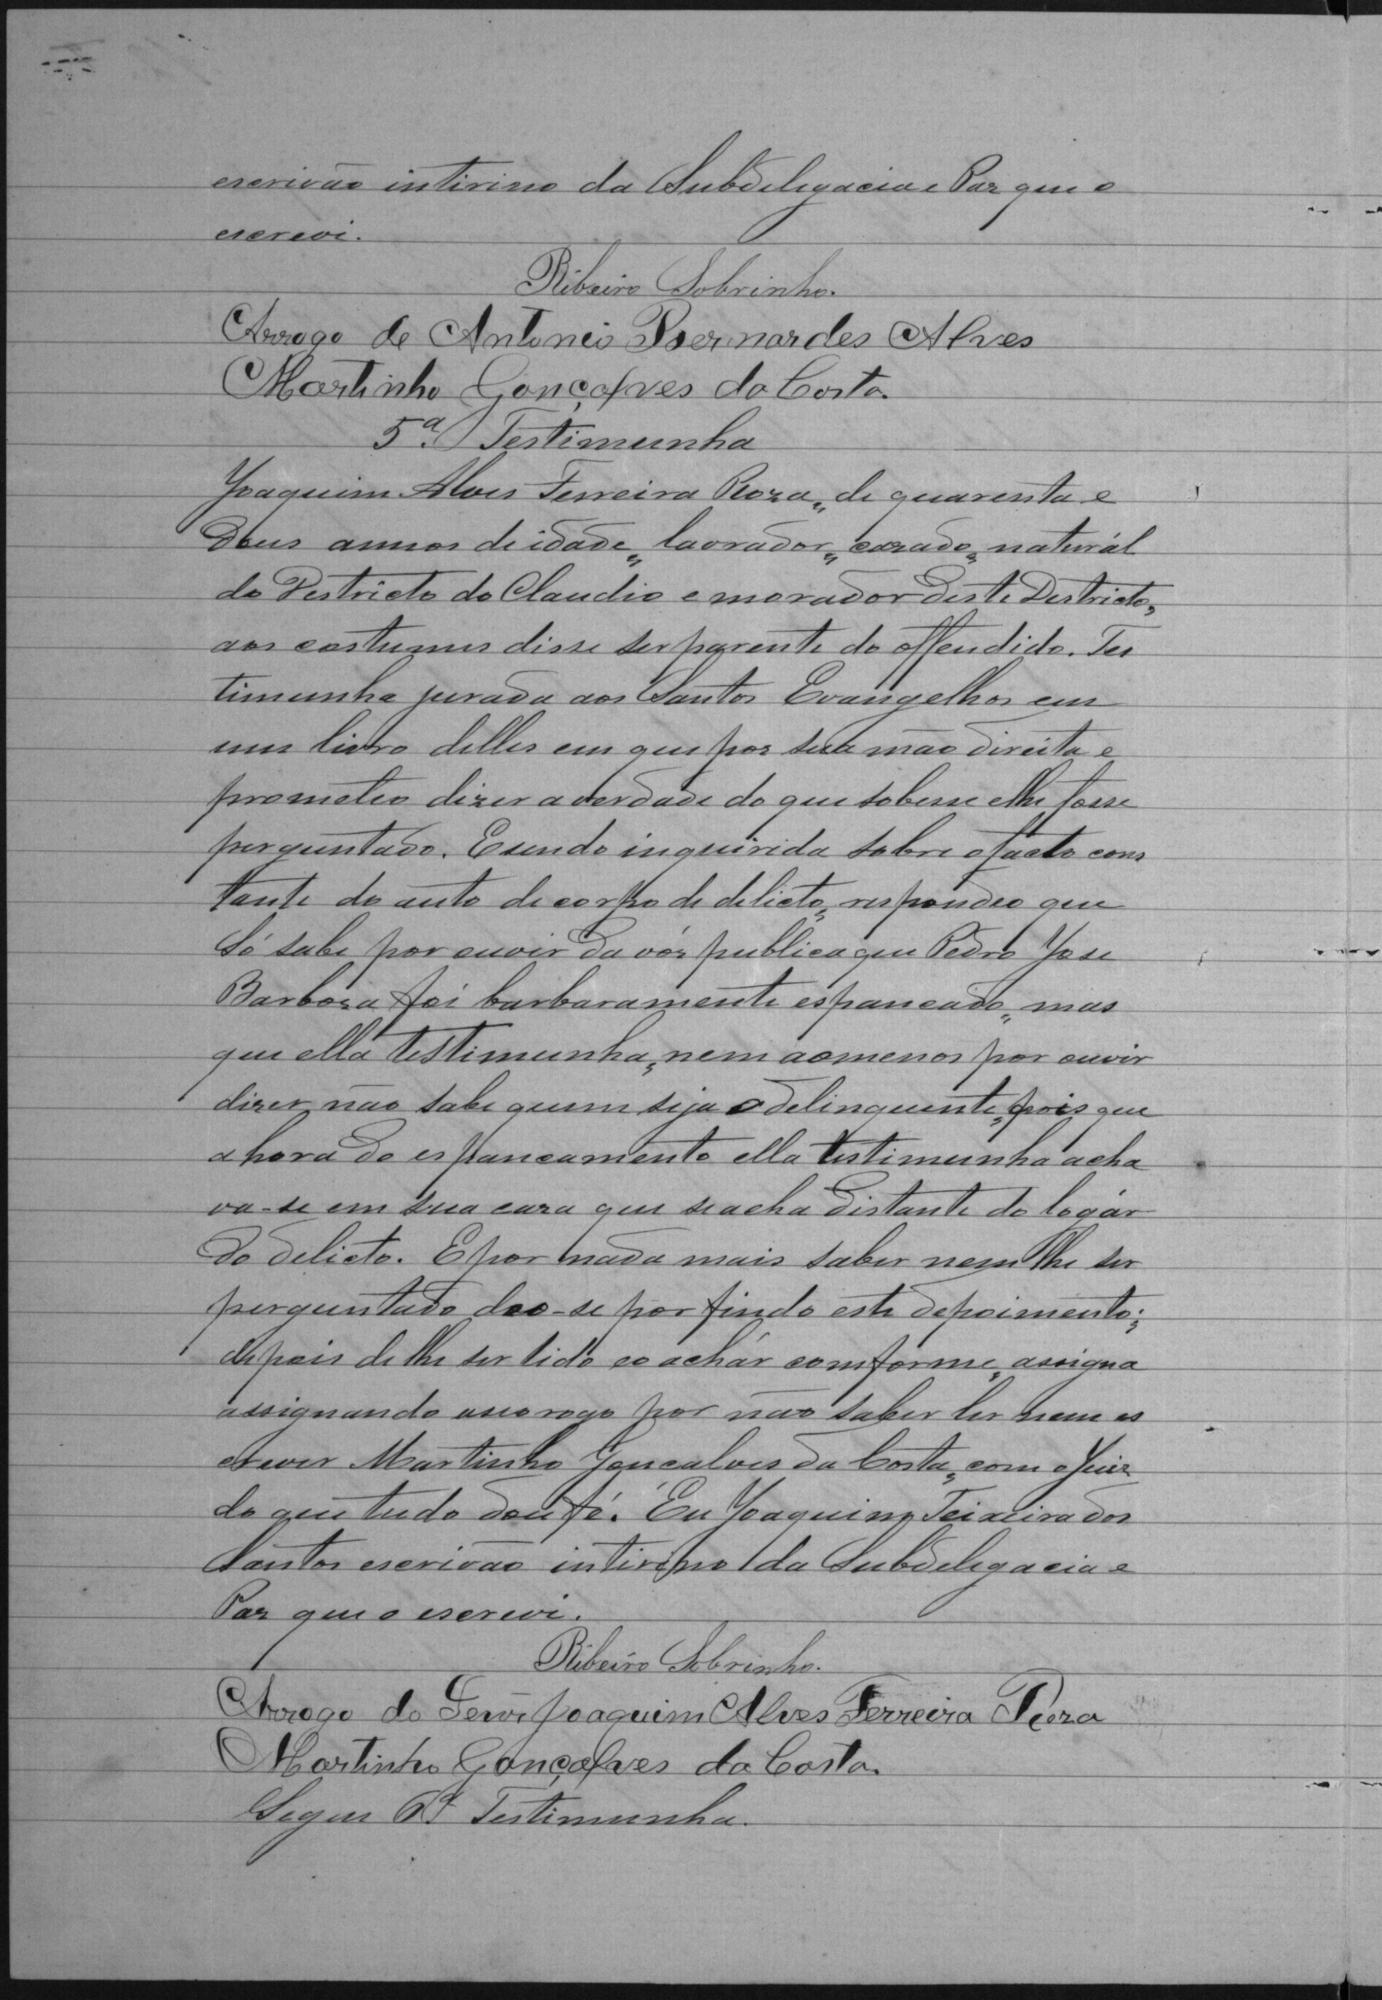 escrivão intirino da Subdelegacia e Paz que o
escrevi.
Ribeiro Sobrinho.
Arrogo de Antonio Bernardes Alves
Martinho Gonçalves da Costa.
5ª Testimunha
Joaquim Alves Ferreira Roza, de quarenta e
Dous annos de idade, lavrador, cazado, naturál
do Destricto do Claudio e morador deste Destricto,
aos costumes disse ser parente do offendido. Tes
timunha jurada aos Santos Evangelhos em
um livro delles em que pos sua mão direita e
prometeo dizer a verdade do que sobesse elhe fosse
perguntado. Esendo inquirida sobre o facto cons
tante do auto de corpo de delicto, respondeo que
Só sabe por ouvir da vóz publica que Pedro Jose
Barboza foi barbaramente espancado, mas
que ella testimunha, nem aomenos por ouvir
dizer não sabe quem seja o delinquente, pois que
a hora do espancamento ella testimunha acha
va-se em sua caza que seacha distante do logár
do delicto. E por nada mais saber nem lhe ser
perguntado deo-se por findo este depoimento;
depois de lhe ser lido eo achár comforme, assigna
assignando aseorogo por não saber ler nem es
crever Martinho Gonçalves da Costa, com o Juiz
do que tudo dou fé. Eu Joaquim Teixeira dos
Santos escrivão intirino da Subdelegacia e
Paz que o escrevi.
Ribeiro Sobrinho.
Arrogo do Joaquim Alves Ferreira Roza
Martinho Gonçalves da Costa.
Segue 6ª Testimunha.